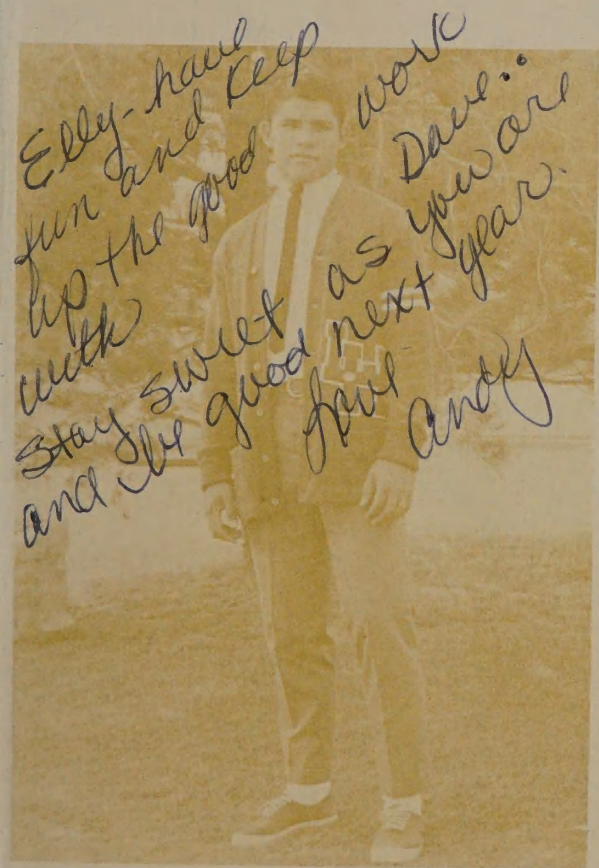 Elly - have
fun and keep
up the good work
with Dave..
Stay sweet as you are
and be good next year.
Love
Andy